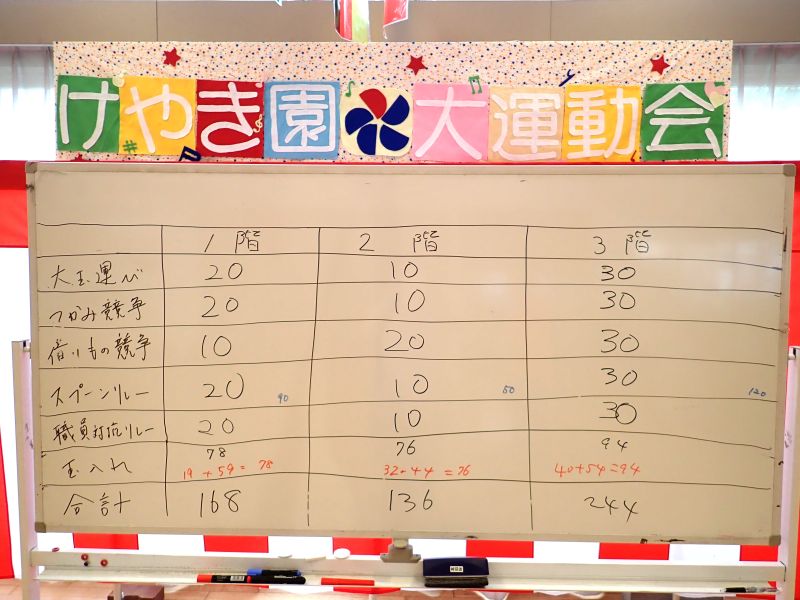 けやき園 大運動会
1階 2階 3階
大玉運び 20 10 30
つかみ競争 20 10 30
借りもの競争 10 20 30
スプーンリレー 20 90 10 50 30 120
職員対抗リレー 20 10 30
78 76 94
玉入れ 19+59=78 32+44=76 40+54=94
合計 168 136 244